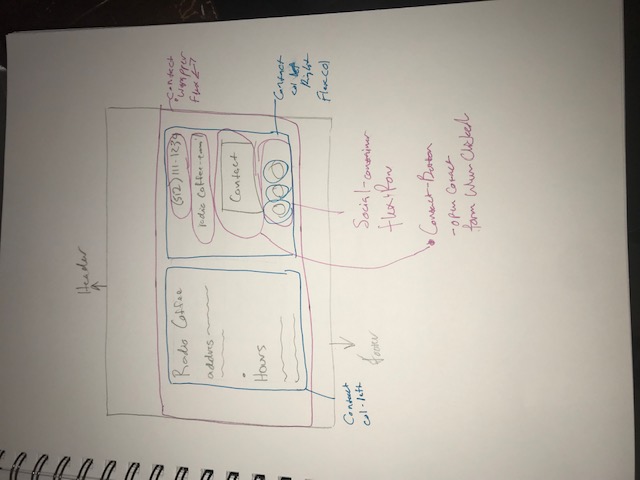 Header
Radio Coffee
address
Hours
(512) 111-1234
radio coffee-email
Contact
Contact
wrapper
Flex <->
Contact
col
Right
Flex col
Contact
col-left
footer
Social-container
flex Row
Contact-Button
-open contact
form when Clicked